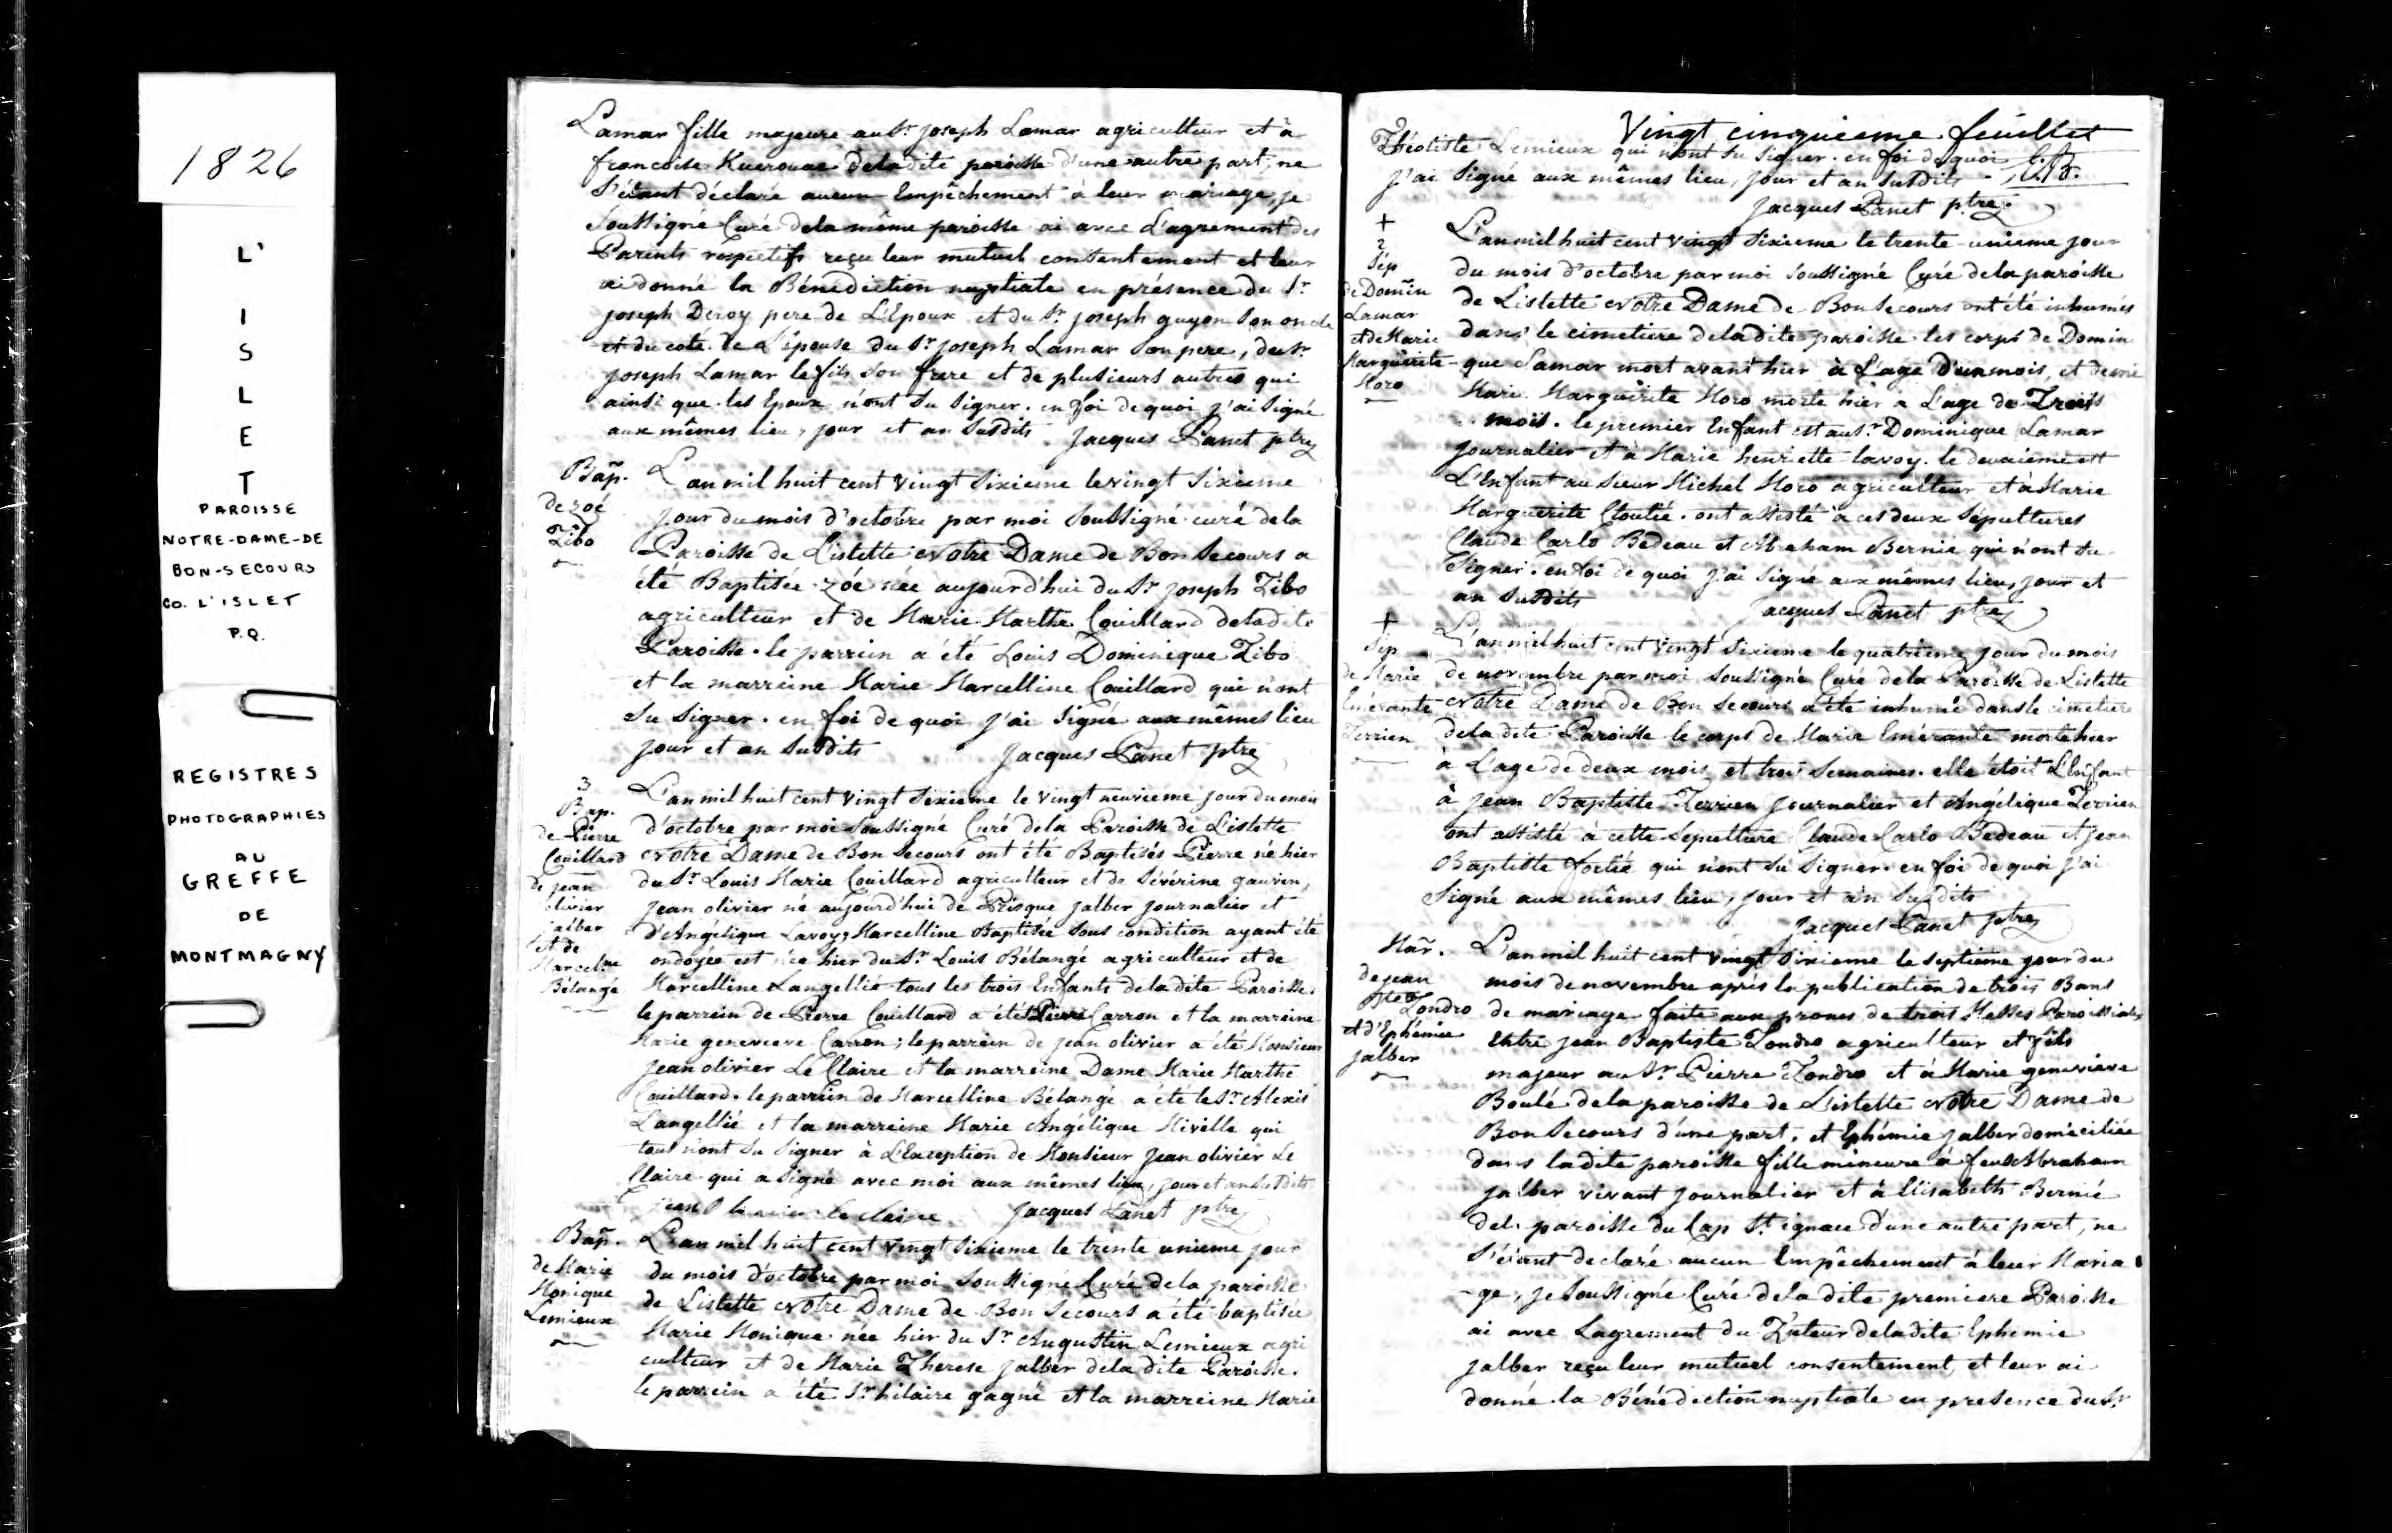 1826
L'
I
S
L
E
T
PAROISSE
NOTRE-DAME-DE
BON-SECOURS
CO. L'ISLET
P.Q.
REGISTRES
PHOTOGRAPHIES
AU
GREFFE
DE
MONTMAGNY
Lamar fille majeure au Sr. joseph Lamar agriculteur et à
francoise Kuerouac de ladite paroisse d'une autre part, ne
s'étant déclaré aucun Empêchement à leur mariage, je
soussigné Curé de la même paroisse ai avec L'agrement des
Parents respectifs reçu leur mutuel contentement et leur
ai donné la Bénédiction nuptiale en présence du Sr
joseph Deroy pere de L'Epoux et du Sr joseph guyon son oncle
et du coté de L'épouse du Sr joseph Lamar son pere, du Sr
joseph Lamar le fils son frere et de plusieurs autres qui
ainsi que les Epoux n'ont su signer. en foi de quoi j'ai signé
aux mêmes lieu, jour et an susdits. Jacques Panet ptre
Bap.
de zoé
Tibo
L'an mil huit cent vingt sixieme le vingt sixieme
jour du mois d'octobre par moi soussigné curé de la
Paroisse de Lislette Notre Dame de Bon secours a
été Baptisée zoé née aujourd'hui du Sr joseph Tibo
agriculteur et de Marie Marthe Couillard de ladite
Paroisse. le parrein a été Louis Dominique Tibo
et la marreine Marie Marcelline Couillard qui n'ont
su signer. en foi de quoi j'ai signé aux mêmes lieu
jour et an susdits Jacques Panet ptre
3
Bap.
de Pierre
Couillard
de jean
olivier
jalber
et de
Marcelne
Bélangé
L'an mil huit cent vingt sixieme le vingt neuvieme jour du mois
d'octobre par moi soussigné Curé de la Paroisse de Lislette
Notre Dame de Bon secours ont été Baptisés Pierre né hier
du Sr Louis Marie Couillard agriculteur et de sévérine gauvin,
jean olivier né aujourd'hui de Prisque jalber journalier et
d'Angelique Lavoy, Marcelline Baptisée sous condition ayant été
ondoyée est née hier du Sr Louis Bélangé agriculteur et de
Marcelline Langellié tous les trois Enfants de ladite Paroisse.
le parrein de Pierre Couillard a été Pierre Carron et la marreine
Marie genevieve Carron; le parrein de jean olivier a été Monsieur
jean olivier Le Claire et la marreine Dame Marie Marthe
Couillard. le parrein de Marcelline Bélangé a été le Sr Alexis
Langellié et la marreine Marie Angélique Nivelle qui
tous n'ont su signer à L'Exception de Monsieur jean olivier Le
Claire qui a signé avec moi aux mêmes lieu, jour et an susdits
le claire Jacques Panet ptre
Bap.
de Marie
Monique
Lemieux
L'an mil huit cent vingt sixieme le trente unieme jour
du mois d'octobre par moi soussigné Curé de la paroisse
de Lislette Notre Dame de Bon secours a été baptisée
Marie Monique née hier du Sr Augustin Lemieux agri
culteur et de Marie Therese jalber de la dite Paroisse.
le parrein a été Sr hilaire gagné et la marreine Marie
Vingt cinquieme feuillet
Théotiste Lemieux qui n'ont su signer. en foi de quoi
j'ai signé aux mêmes lieu, jour et an susdits
Jacques Panet ptre
+
2
Sép
de Domin
Lamar
et de Marie
Marguerite
Moro
L'an mil huit cent vingt sixieme le trente unieme jour
du mois d'octobre par moi soussigné Curé de la paroisse
de Lislette Notre Dame de Bon secours ont été inhumés
dans le cimetiere de ladite paroisse les corps de Domin
-que Lamar mort avant hier à L'age d'un mois, et demie
Marie Marguerite Moro morte hier à L'age de Trois
mois. le premier Enfant est au Sr Dominique Lamar
journalier et à Marie henriette lavoy. le deuxieme est
L'Enfant au sieur Michel Moro agriculteur et à Marie
Marguerite Cloutié. ont assisté à ces deux sépultures
Claude Carlo Bedeau et Abraham Bernié qui n'ont su
signer. en foi de quoi j'ai signé aux mêmes lieu, jour et
an susdits Jacques Panet ptre
+
Sép
de Marie
Emérante
Terrien
L'an mil huit cent vingt sixieme le quatrieme jour du mois
de novembre par moi soussigné Curé de la Paroisse de Lislette
Notre Dame de Bon secours a été inhumé dans le cimetiere
de la dite Paroisse le corps de Marie Emérante morte hier
à L'age de deux mois et trois semaines. elle étoit L'Enfant
à jean Baptiste Terrien journalier et Angélique Terrien
ont assisté à cette sepulture Claude Carlo Bedeau et jean
Baptiste fortié qui n'ont su signer. en foi de quoi j'ai
signé aux mêmes lieu, jour et an susdits
Jacques Panet ptre
Mar.
de jean
Bte Tondro
et d'Ephémie
jalber
L'an mil huit cent vingt sixieme le septieme jour du
mois de novembre après la publication de trois Bans
de mariage faite aux prones de trois Messes Paroissiales
entre jean Baptiste Tondro agriculteur et fils
majeur au Sr Pierre Tondro et à Marie genevieve
Boulé de la paroisse de Lislette Notre Dame de
Bon secours d'une part, et Ephémie jalber domiciliée
dans ladite paroisse fille mineure à feu Abraham
jalber vivant journalier et à Elisabeth Bernié
de la paroisse du Cap St ignace d'une autre part, ne
s'étant declaré aucun Empêchement à leur Maria
-ge, je soussigné Curé de la dite premiere Paroisse
ai avec Lagrement du Tuteur de ladite Ephemie
jalber reçu leur mutuel consentement, et leur ai
donné la Bénédiction nuptiale en presence du Sr